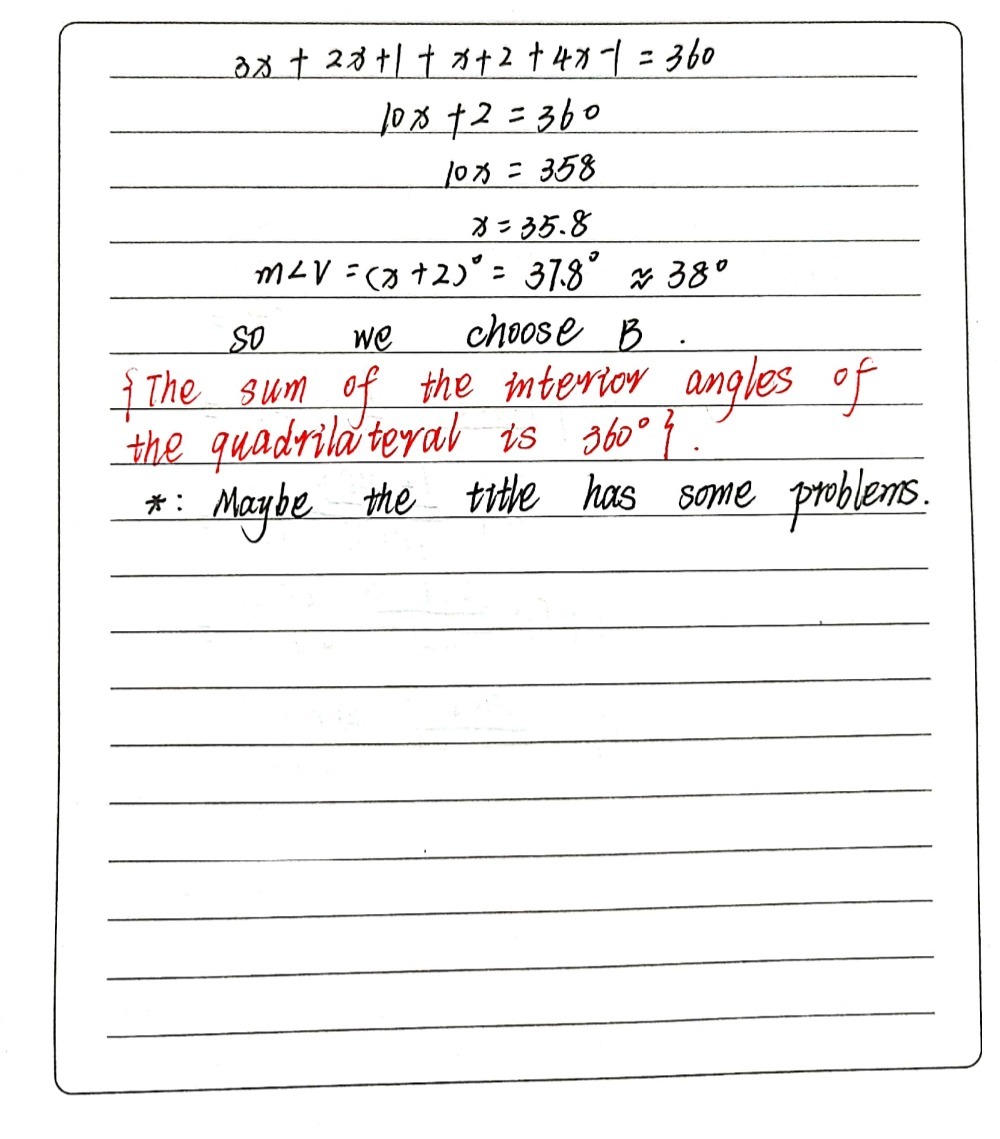 3x + 2x+1 + x+2 + 4x-1 = 360
10x + 2 = 360
10x = 358
x = 35.8
m∠V = (x+2)° = 37.8° ≈ 38°
so we choose B .
{The sum of the interior angles of
the quadrilateral is 360°}.
*: Maybe the title has some problems.